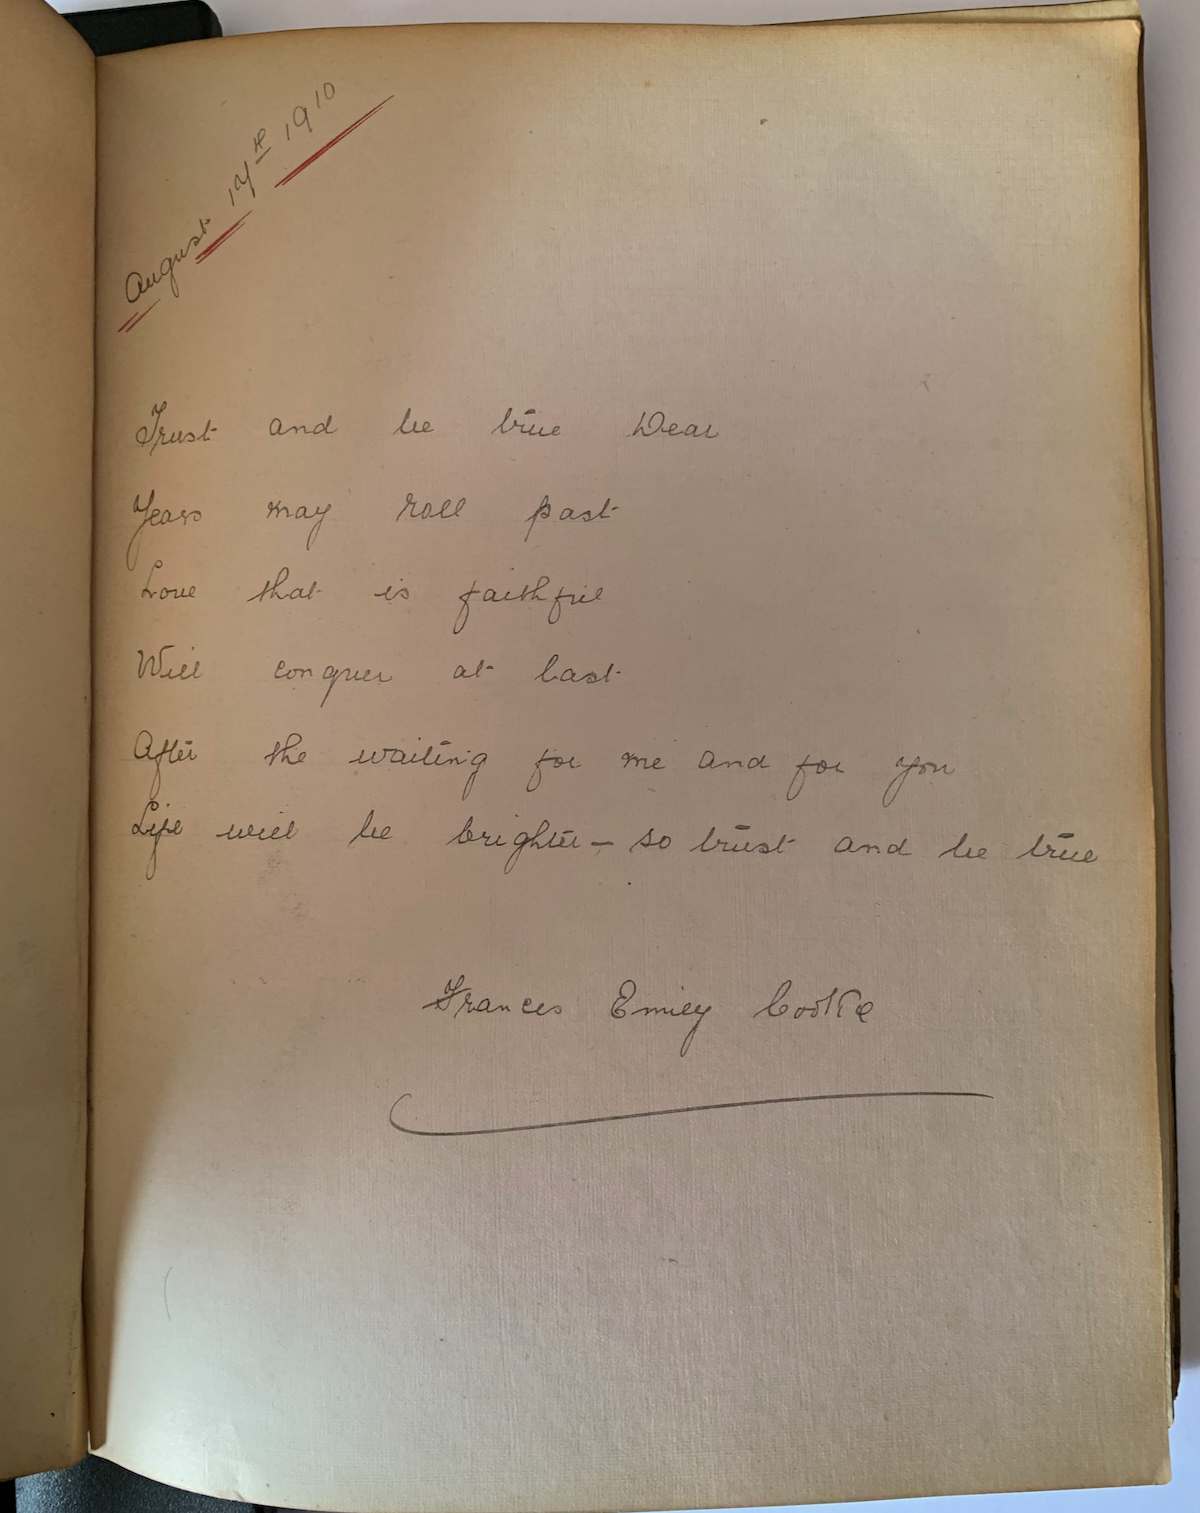 August 17th 1910
Trust and be true Dear
Years may roll past
Love that is faithful
Will conquer at last
After the waiting for me and for you
Life will be brighter – so trust and be true
Frances Emily Cooke